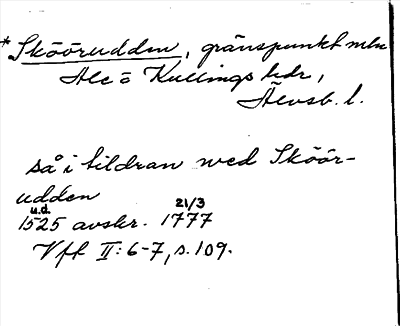 *Sköörudden, gränspunkt mln
Ale o Kullings hdr,
Älvsb. l.
så i tildran wed Sköör-
udden
u.d. 21/3
1525 avskr. 1777
Vfl II: 6-7, s. 109.